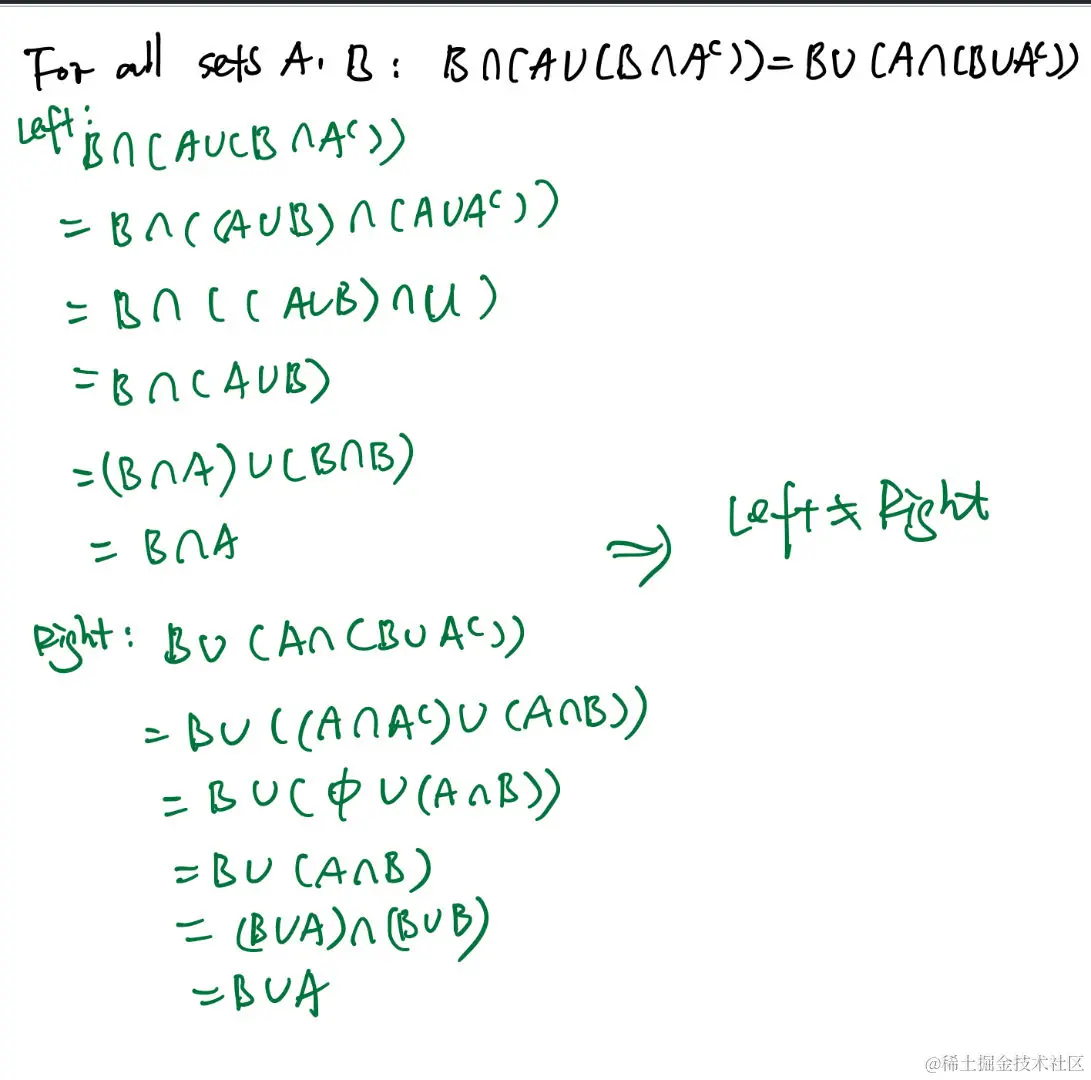 For all sets A, B : B∩(A∪(B∩Aᶜ))=B∪(A∩(B∪Aᶜ))
Left: B∩(A∪(B∩Aᶜ))
= B∩((A∪B)∩(A∪Aᶜ))
= B∩((A∪B)∩U)
= B∩(A∪B)
=(B∩A)∪(B∩B)
= B∩A
⇒ Left ≠ Right
Right: B∪(A∩(B∪Aᶜ))
= B∪((A∩Aᶜ)∪(A∩B))
= B∪(ϕ∪(A∩B))
=B∪(A∩B)
= (B∪A)∩(B∪B)
=B∪A
@稀土掘金技术社区